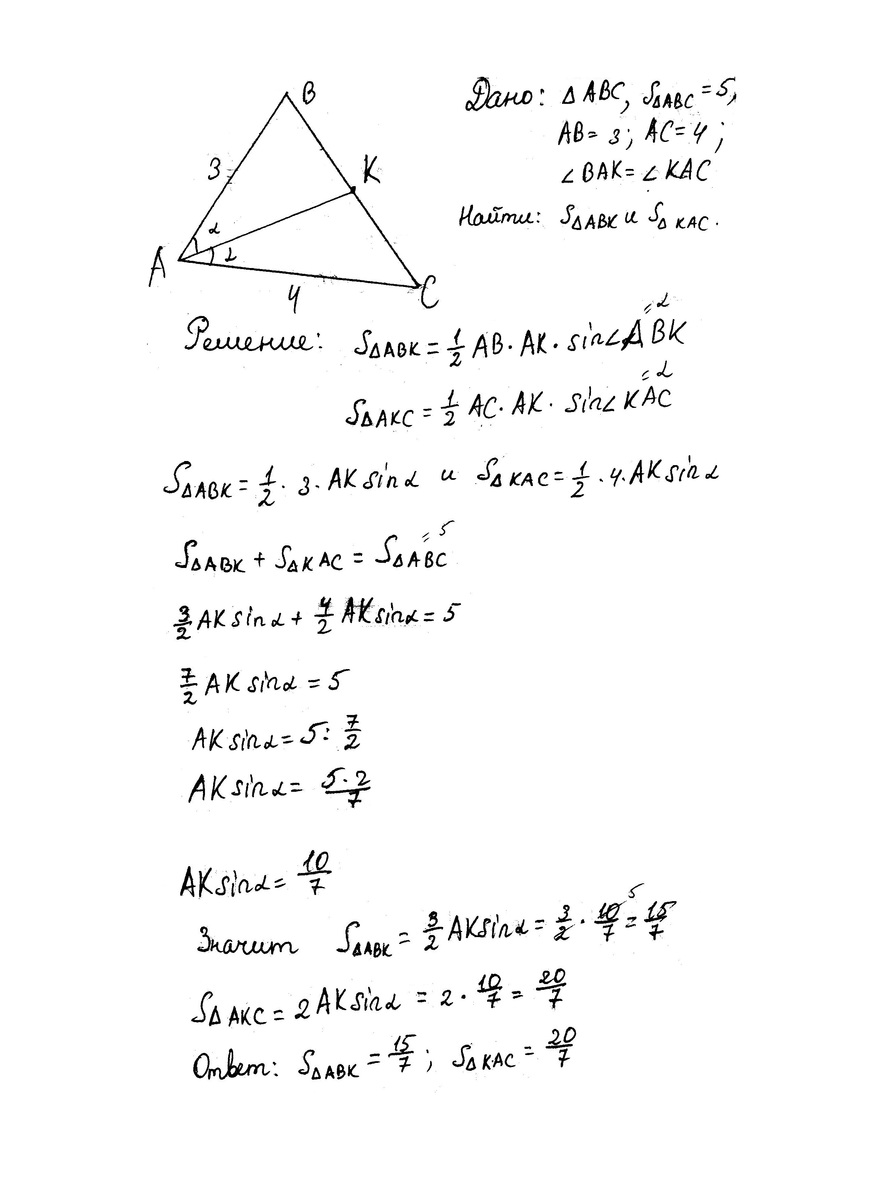 B
Дано: ΔABC, SΔABC = 5,
AB = 3; AC = 4;
3
K
∠BAK = ∠KAC
α
Найти: SΔABK и SΔKAC.
A
α
4
C
Решение: SΔABK = 1/2 AB · AK · sin∠ABK = α
SΔAKC = 1/2 AC · AK · sin∠KAC = α
SΔABK = 1/2 · 3 · AK sinα и SΔKAC = 1/2 · 4 · AK sinα
SΔABK + SΔKAC = SΔABC = 5
3/2 AK sinα + 4/2 AK sinα = 5
7/2 AK sinα = 5
AK sinα = 5 : 7/2
AK sinα = 5·2/7
AK sinα = 10/7
Значит SΔABK = 3/2 AK sinα = 3/2 · 10/7 5 = 15/7
SΔAKC = 2 AK sinα = 2 · 10/7 = 20/7
Ответ: SΔABK = 15/7; SΔKAC = 20/7